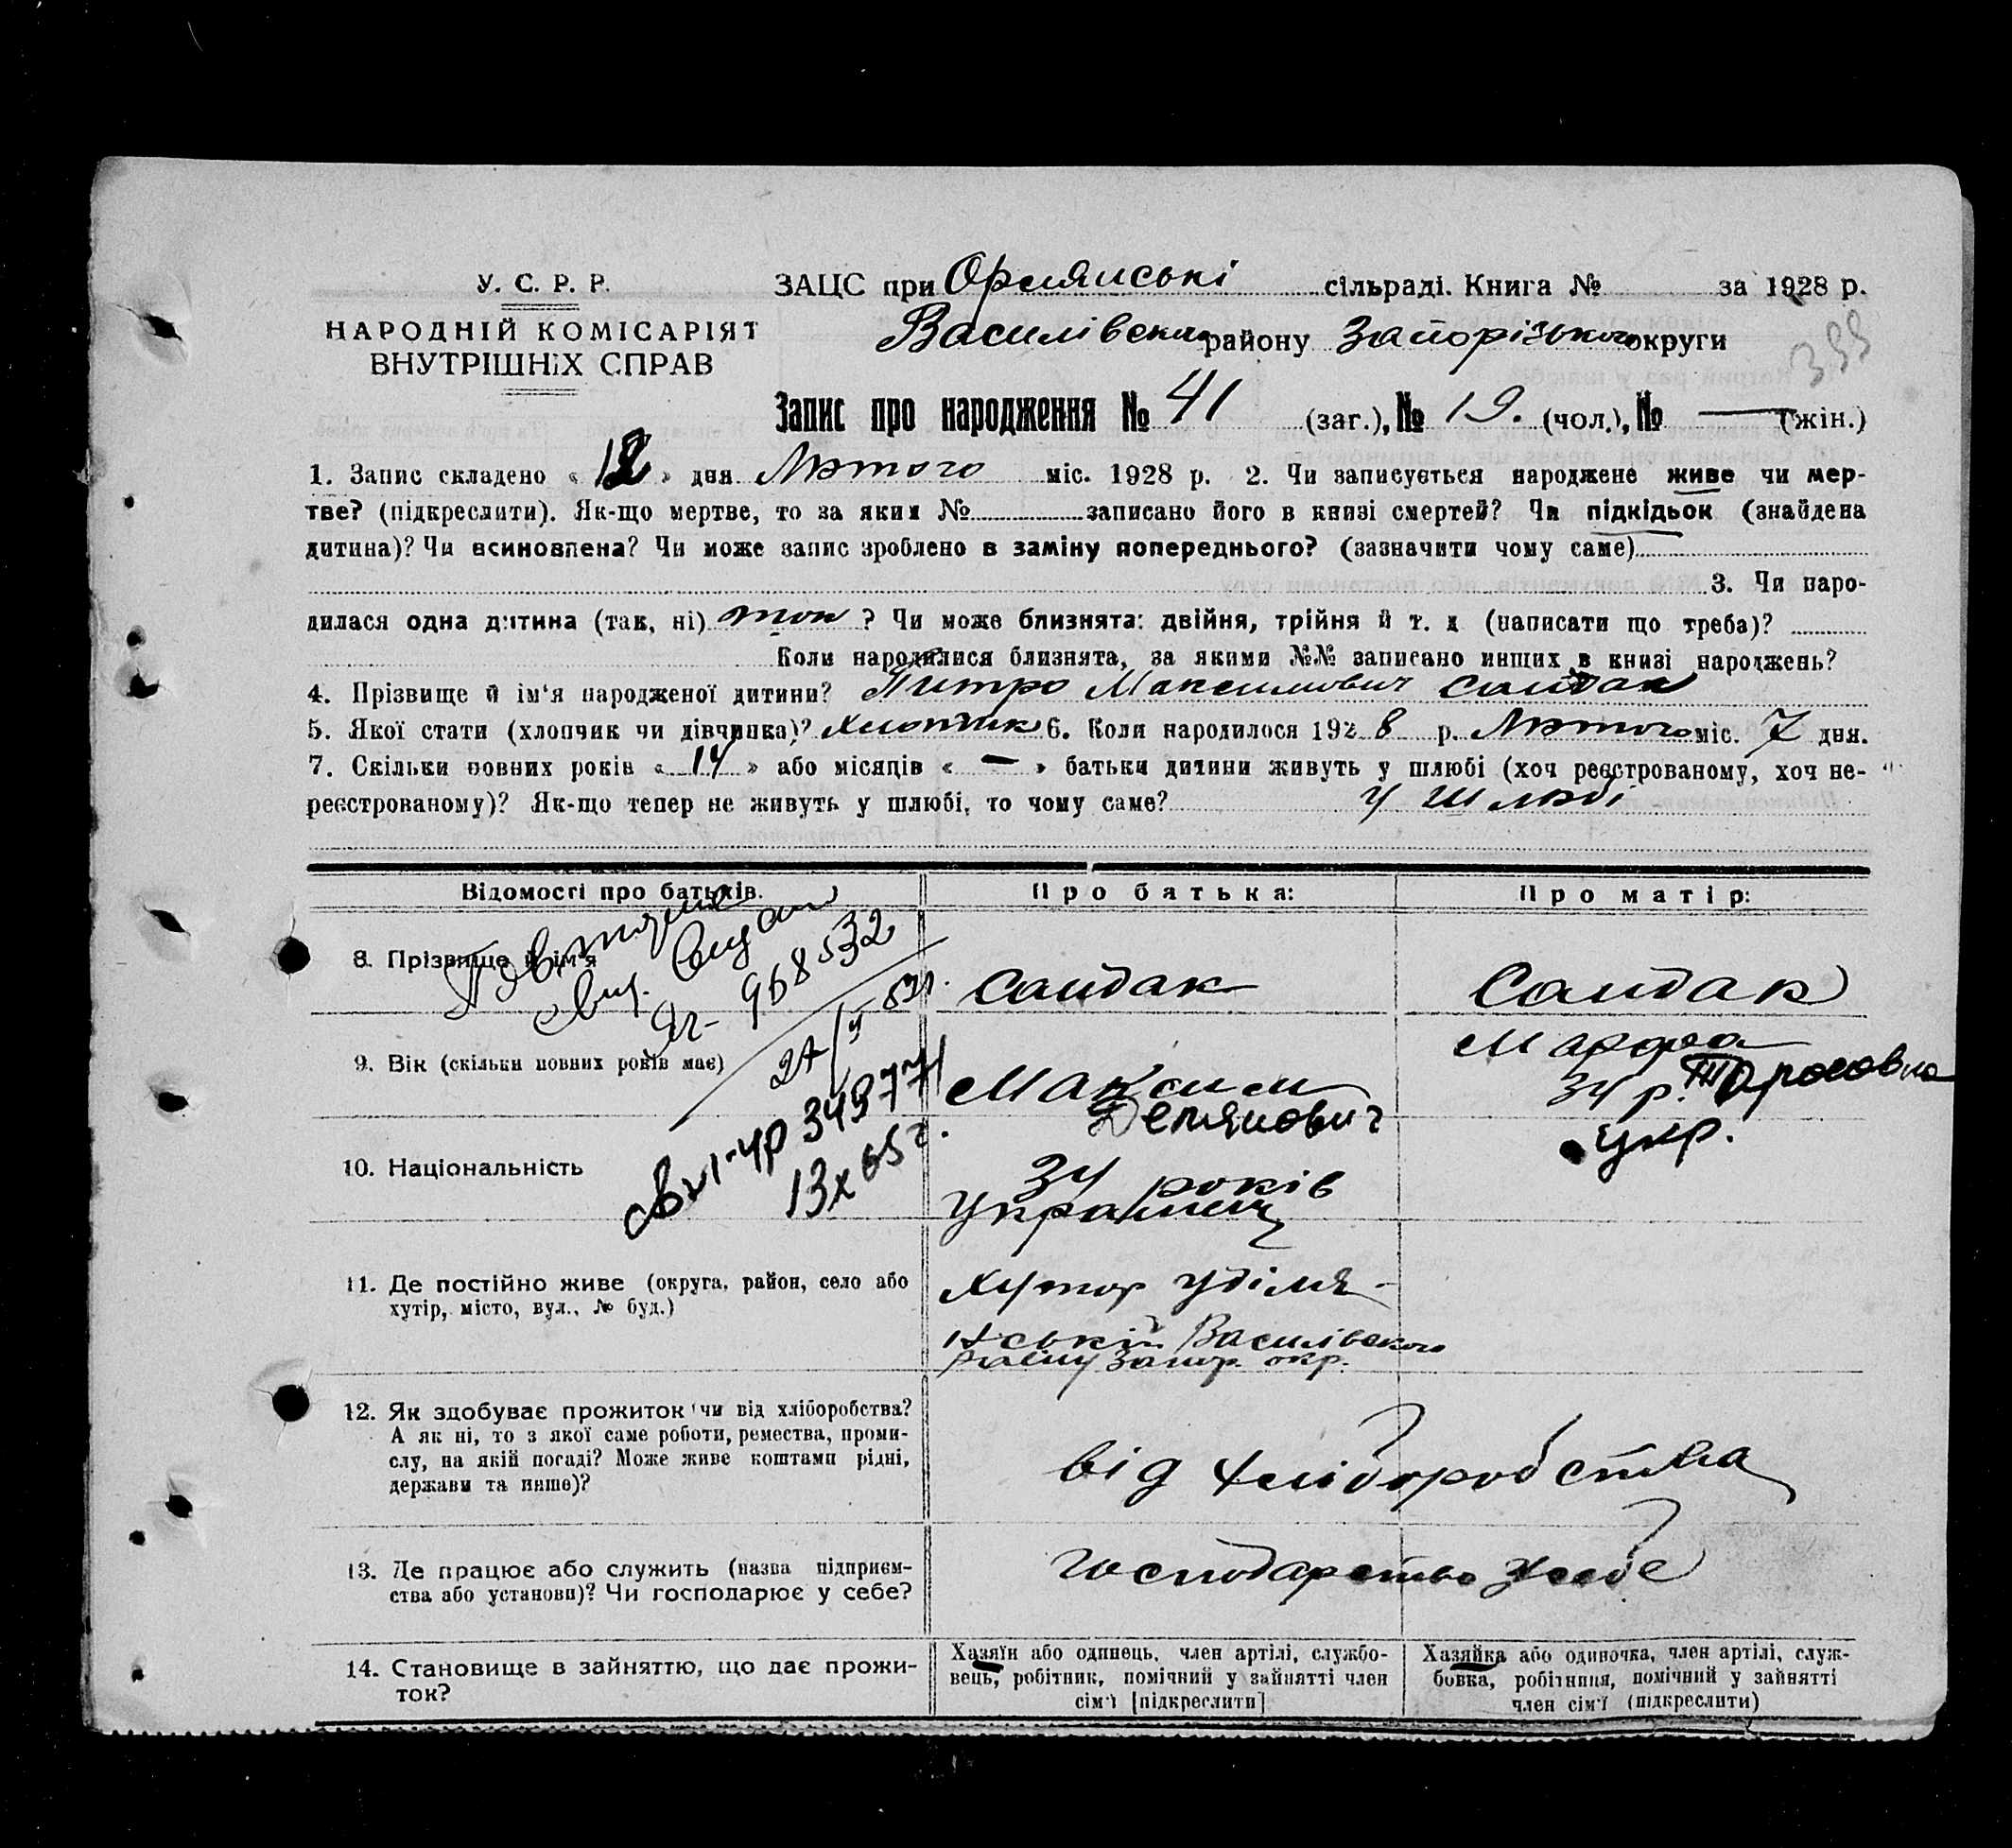 У. С. Р. Р.
НАРОДНІЙ КОМІСАРІЯТ
ВНУТРІШНІХ СПРАВ
ЗАЦС при Орлянські сільраді. Книга № за 1928 р.
Василівськ району Запорізького округи
Запис про народження № 41 (заг.), № 19. (чол.), № — (жін.)
1. Запис складено « 12 » дня Лютого міс. 1928 р. 2. Чи записується народжене живе чи мер-
тве? (підкреслити). Як-що мертве, то за яким № записано його в книзі смертей? Чи підкідьок (знайдена
дитина)? Чи всиновлена? Чи може запис зроблено в заміну попереднього? (зазначити чому саме)
3. Чи наро-
дилася одна дитина (так, ні) так ? Чи може близнята: двійня, трійня й т. д (написати що треба)?
Коли народилися близнята, за якими №№ записано инших в книзі народжень?
4. Прізвище й ім'я народженої дитини? Питро Максимович Сандак
5. Якої стати (хлопчик чи дівчинка)? Хлопчик 6. Коли народилося 1928 р. Лютого міс. 7 дня.
7. Скільки повних років « 14 » або місяців « — » батьки дитини живуть у шлюбі (хоч реєстрованому, хоч не-
реєстрованому)? Як-що тепер не живуть у шлюбі, то чому саме? у шлюбі
Відомості про батьків.
Про батька:
Про матір:
8. Прізвище й ім'я
Сандак
Сандак
9. Вік (скільки повних років має)
Максим
Демянович
Марфа
34 р. Тарасовна
10. Національність
34 років
Украінец
укр.
968532
349771
13 х 65 г.
11. Де постійно живе (округа, район, село або
хутір, місто, вул., № буд.)
Хутор Уділя-
нський Василівского
раену Запор. окр.
12. Як здобуває прожиток чи від хліборобства?
А як ні, то з якої саме роботи, ремества, проми-
слу, на якій посаді? Може живе коштами рідні,
держави та инше)?
від хліборобства
13. Де працює або служить (назва підприєм-
ства або установи)? Чи господарює у себе?
господарство у себе
14. Становище в зайняттю, що дає прожи-
ток?
Хазяїн або одинець, член артілі, службо-
вець, робітник, помічний у зайнятті член
сім'ї [підкреслити]
Хазяйка або одиночка, член артілі, служ-
бовка, робітниця, помічний у зайнятті
член сім'ї (підкреслити)